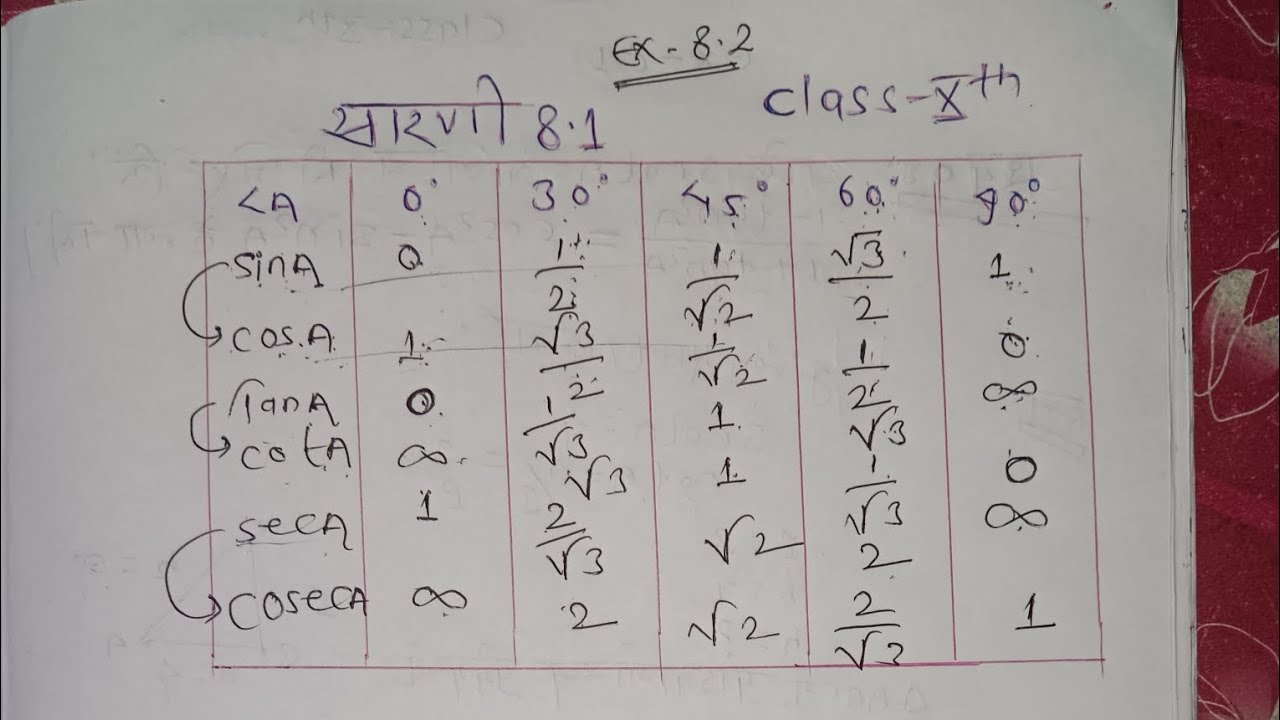 Ex-8.2
सारणी 8.1 Class-Xth
<A 0° 30° 45° 60° 90°
sinA 0 1/2 1/√2 √3/2 1
cos.A 1 √3/2 1/√2 1/2 0
TanA 0 1/√3 1 √3 ∞
cotA ∞ √3 1 1/√3 0
secA 1 2/√3 √2 2 ∞
cosecA ∞ 2 √2 2/√3 1